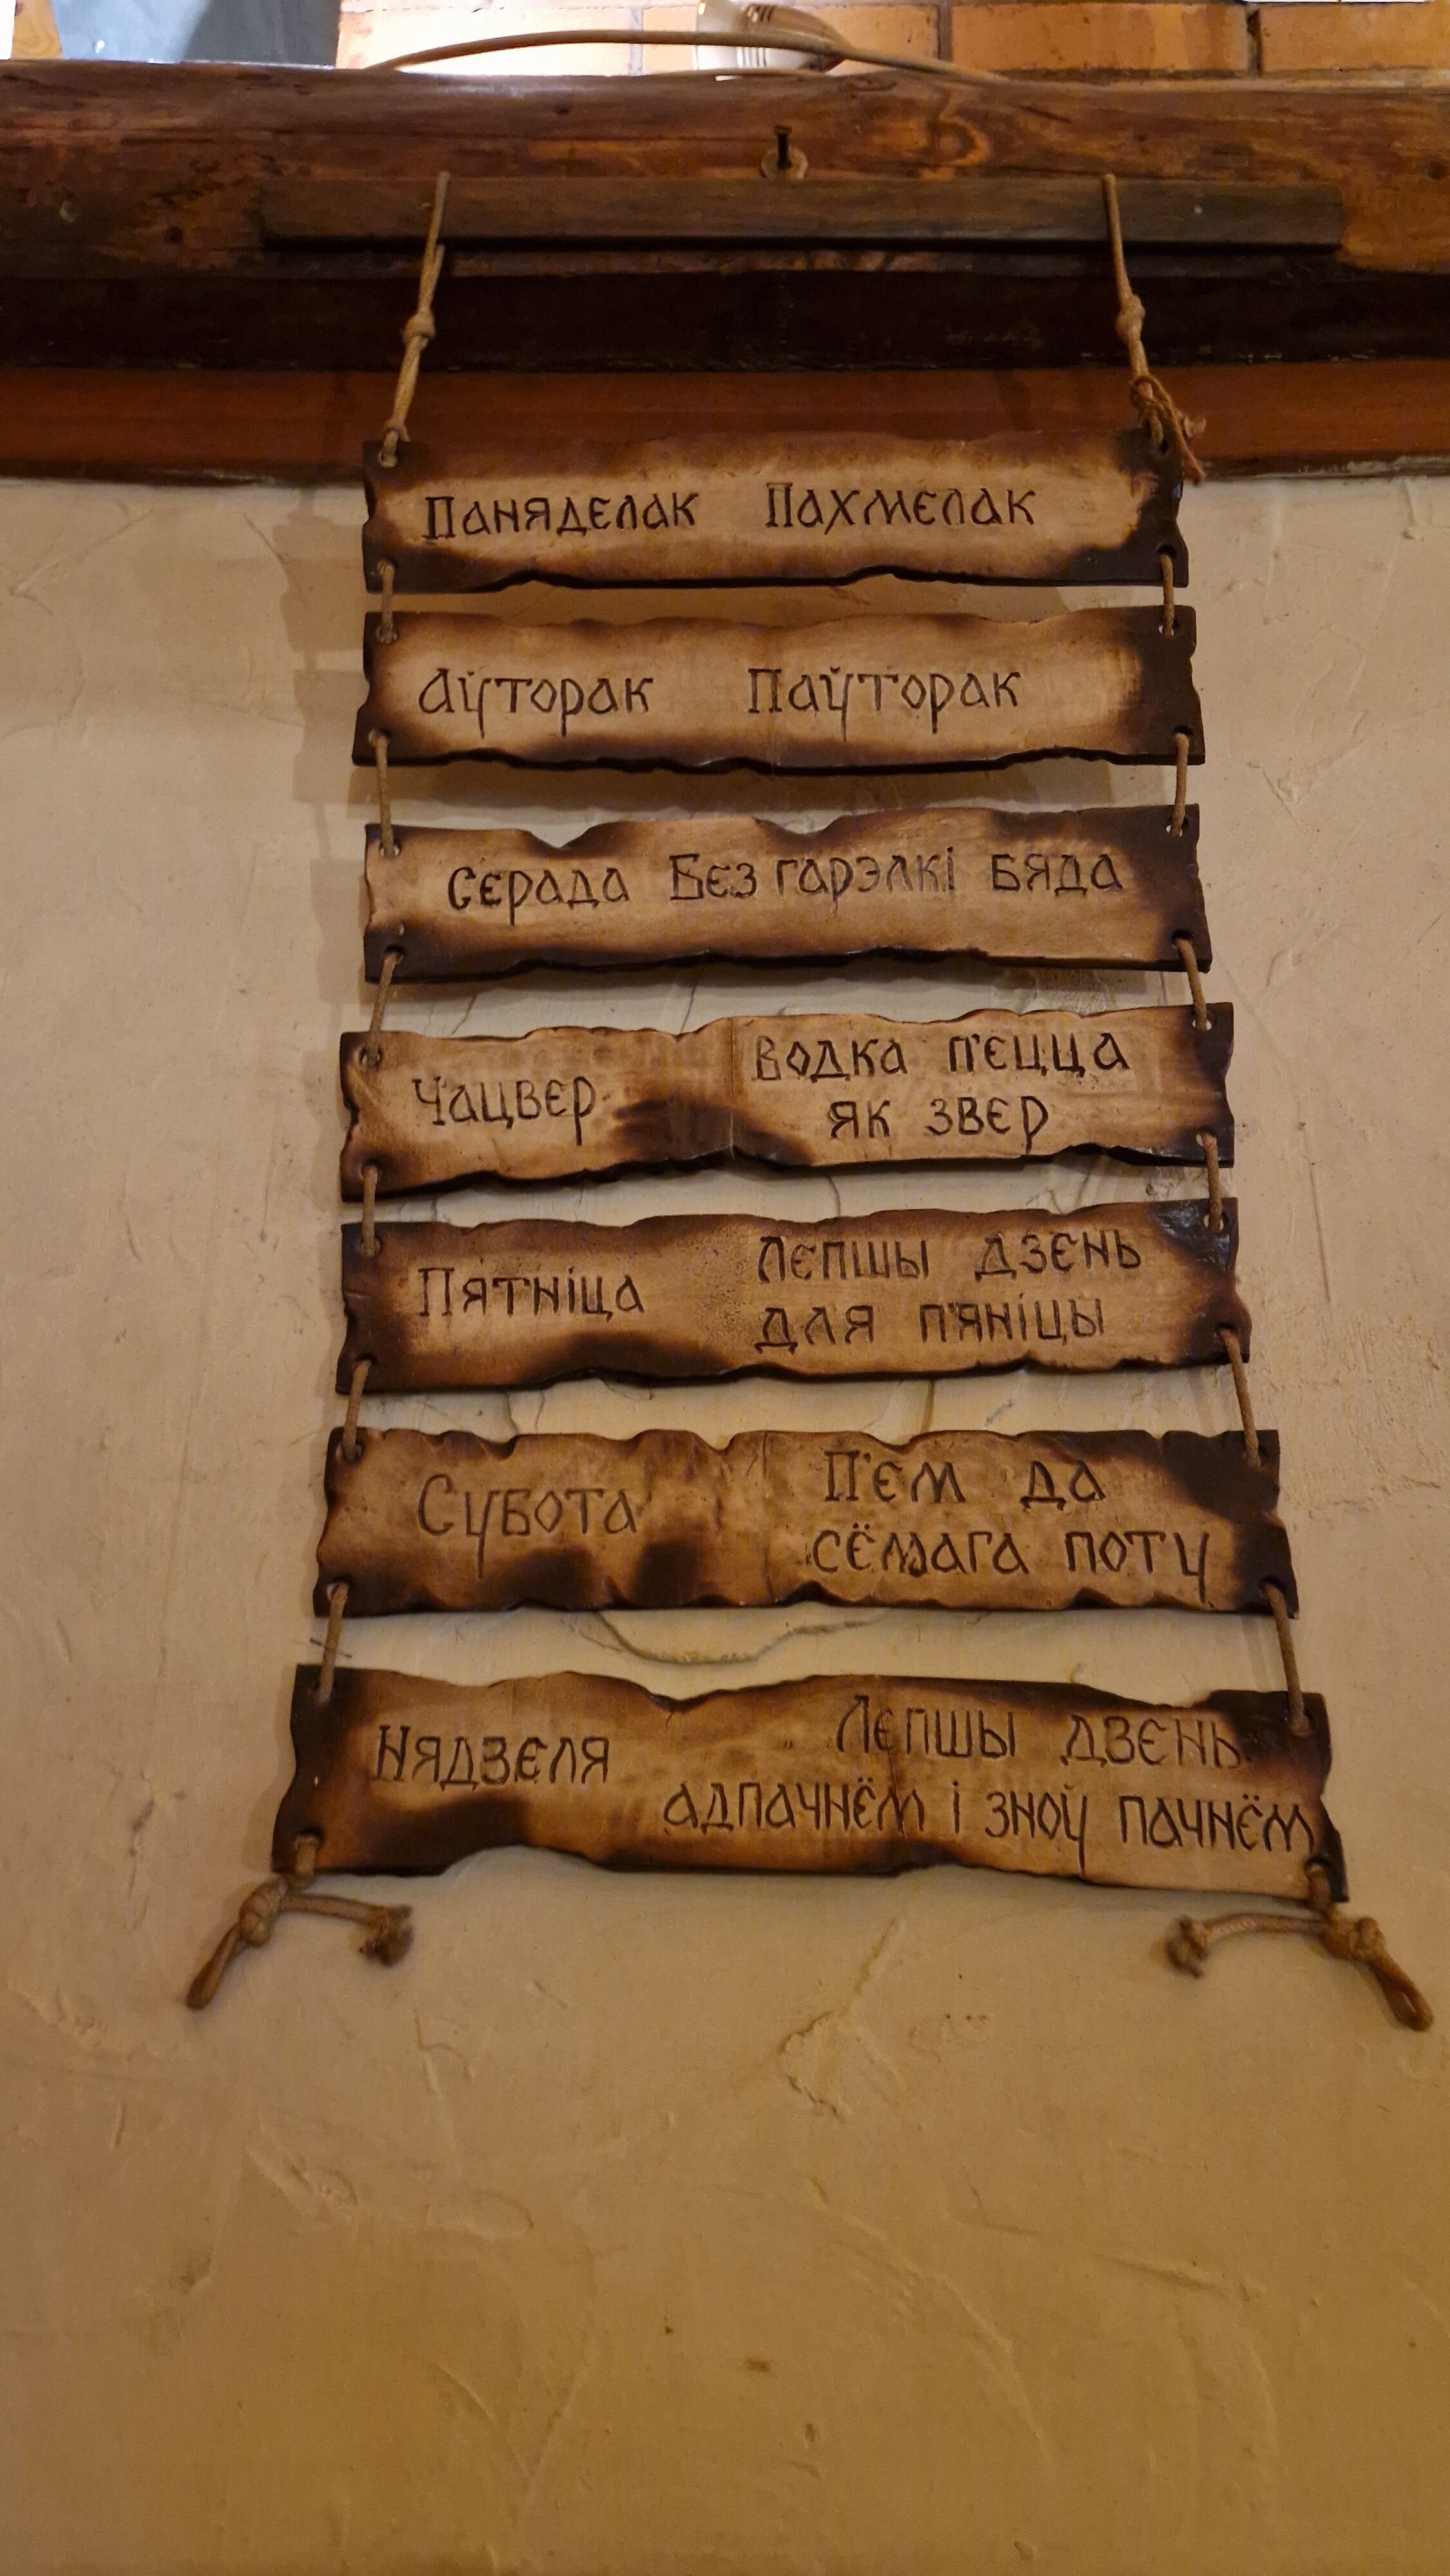 Панядєлак Пахмєлак
Аўторак Паўторак
Сєрада Бєз гарэлкі бяда
Чацвєр
Водка п'єцца
як звєр
Пятніца
Лєпшы дзєнь
для п'яніцы
Субота
П'єм да
сёмага поту
Нядзєля
Лєпшы дзєнь
адпачнём і зноў пачнём